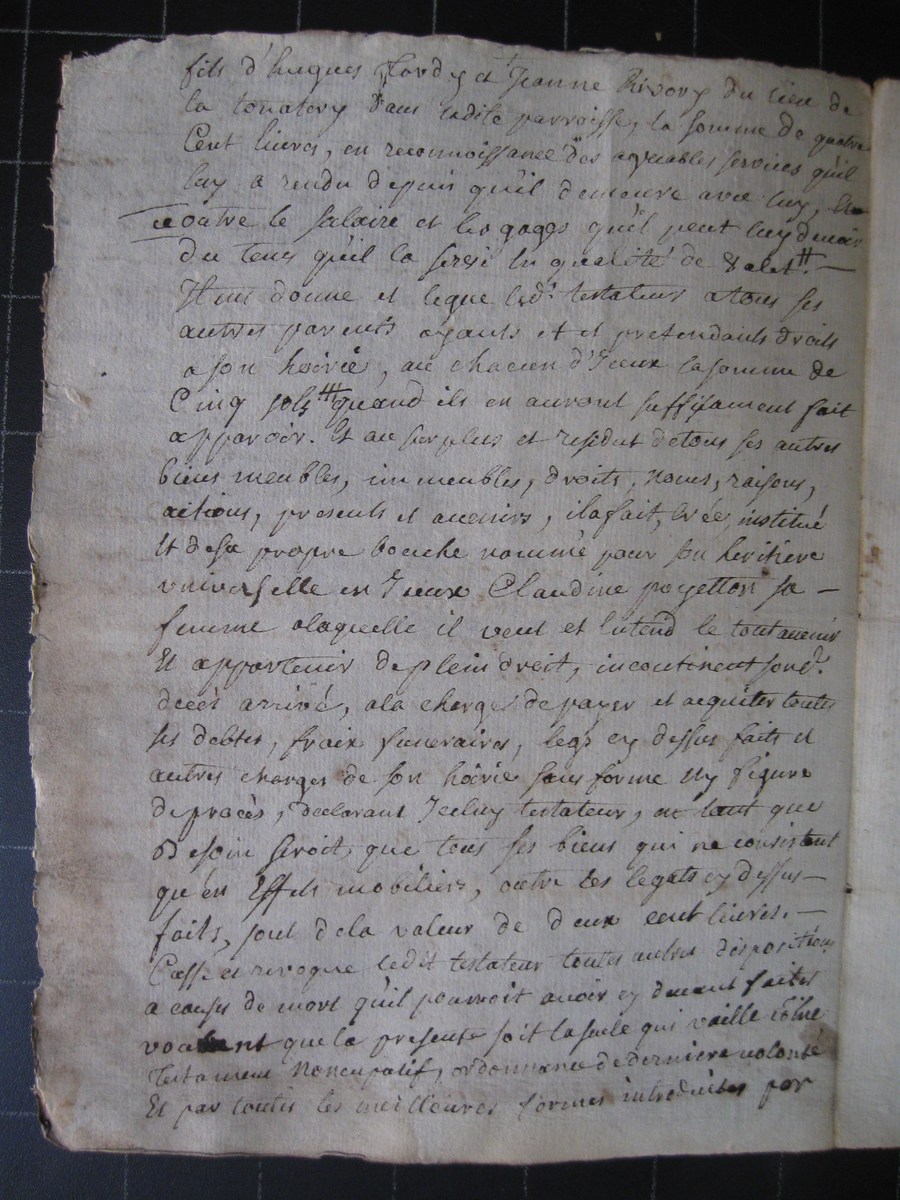 fils d'hugues Hardy et Jeanne Rivory du lieu de
la tonatery dans ladite parroisse, la somme de quatre
Cent livres, en reconnoissance des agreables services qu'il
luy a rendu depuis qu'il demeure avec luy,
outre le salaire et les gages qu'il peut luy devoir
du tems qu'il la servi en qualité de valet #. —
Item donne et legue led. testateur a tous ses
autres parents ayants et et pretendants droits
a son hoirie, au chacun d'Iceux la somme de
Cinq sols # quand ils en auront suffisament fait
apparoir. Et au surplus et residut de tous ses autres
biens meubles, immeubles, droits, noms, raisons,
actions, presents et avenirs, il a fait, créé, institué
Et de sa propre bouche nommé pour son heritiere
vniverselle en Iceux Claudine poyetton sa —
femme alaquelle il veut et entend le tout avenir
Et appartenir de plein droit, incontinent sond.
decès arrivé, ala charge de payer et acquiter toutes
ses debtes, fraix funeraires, legs cy dessus faits et
autres charges de son hoirie sans forme ny figure
de procès, declarant Iceluy testateur, en tant que
besoin seroit que tous ses biens qui ne consistent
qu'en Effets mobiliers, outre les legats cy dessus —
faits, sont dela valeur de deux cent livres. —
Casse et revoque ledit testateur toutes autres dispositions
a cause de mort qu'il pourroit avoir cy devant faites
voulant que la presente soit la seule qui vaille come
Testament Noncupatif, ordonnance de derniere volonté
Et par toutes les meilleures formes introduites par